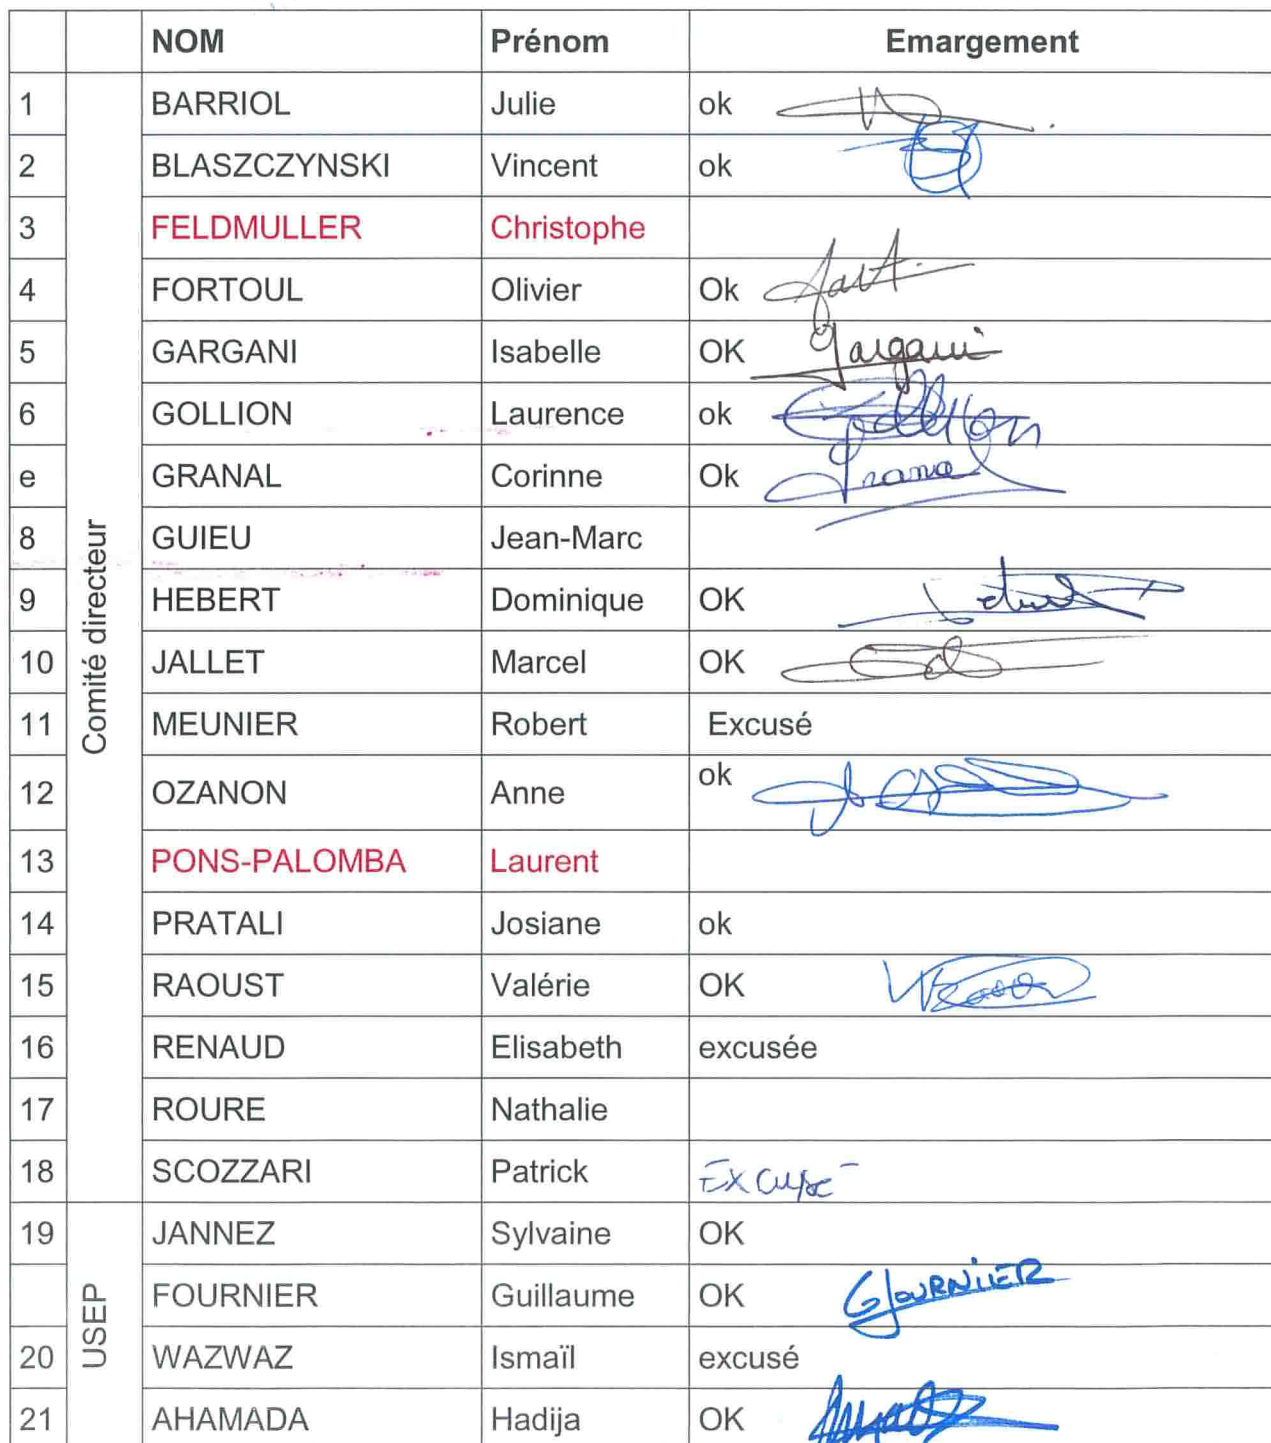 NOM Prénom Emargement
1 BARRIOL Julie ok
2 BLASZCZYNSKI Vincent ok
3 FELDMULLER Christophe
4 FORTOUL Olivier Ok
5 GARGANI Isabelle OK Gargani
6 GOLLION Laurence ok Gollion
e GRANAL Corinne Ok Granal
8 GUIEU Jean-Marc
Comité directeur
9 HEBERT Dominique OK
10 JALLET Marcel OK
11 MEUNIER Robert Excusé
12 OZANON Anne ok
13 PONS-PALOMBA Laurent
14 PRATALI Josiane ok
15 RAOUST Valérie OK
16 RENAUD Elisabeth excusée
17 ROURE Nathalie
18 SCOZZARI Patrick EXCUSÉ
19 JANNEZ Sylvaine OK
FOURNIER Guillaume OK G FOURNIER
USEP
20 WAZWAZ Ismaïl excusé
21 AHAMADA Hadija OK